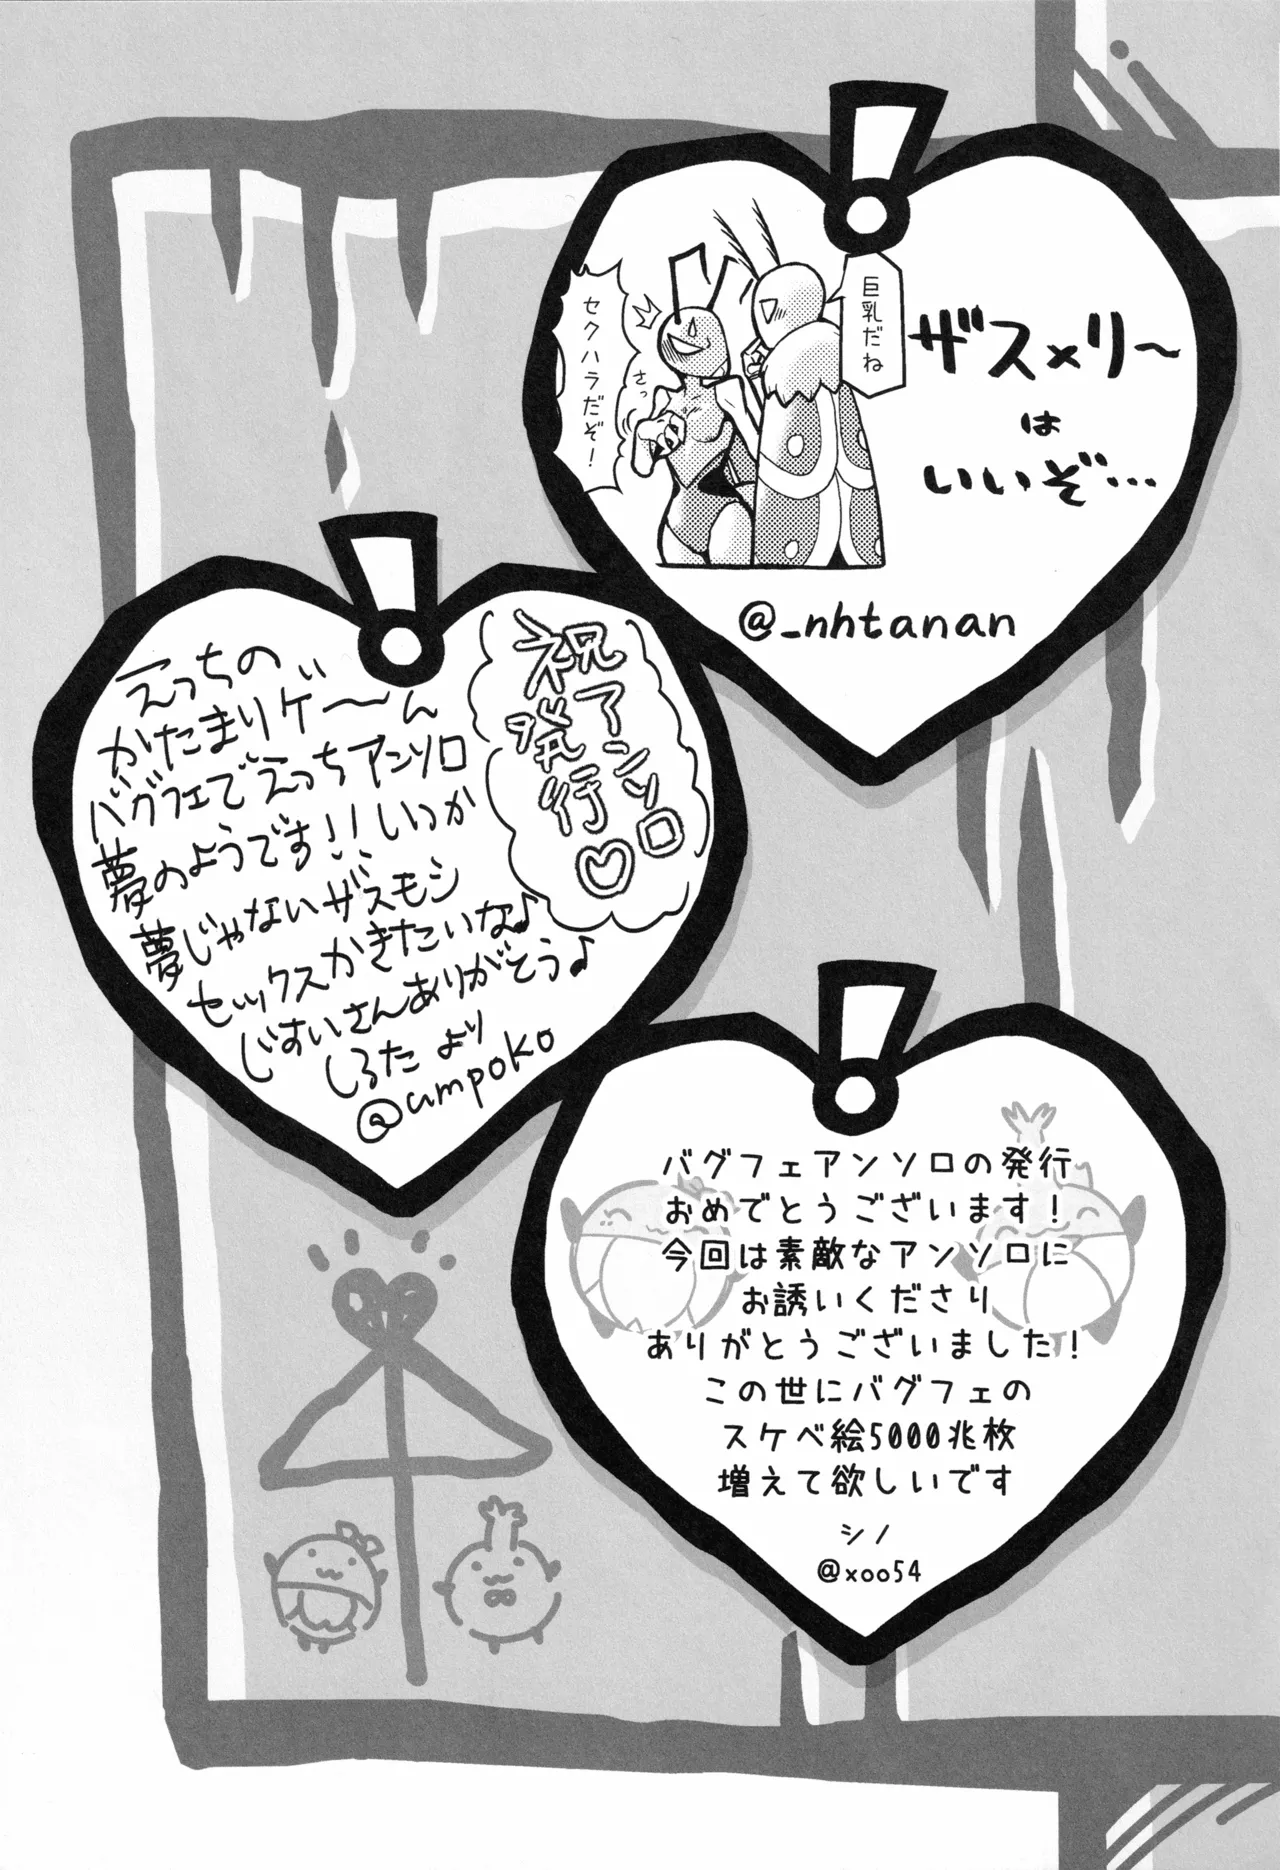 巨乳だね
セクハラだぞ！
さっ
ザスメリ〜
は
いいぞ…
@_nhtanan
祝アンソロ
発行♡
えっちの
かたまりゲ〜ん
バグフェでえっちアンソロ
夢のようです!!いつか
夢じゃないザスモシ
セックスかきたいな♪
じすいさんありがとう♪
しろた より
@umpoko
バグフェアンソロの発行
おめでとうございます！
今回は素敵なアンソロに
お誘いくださり
ありがとうございました！
この世にバグフェの
スケベ絵5000兆枚
増えて欲しいです
シノ
@xoo54